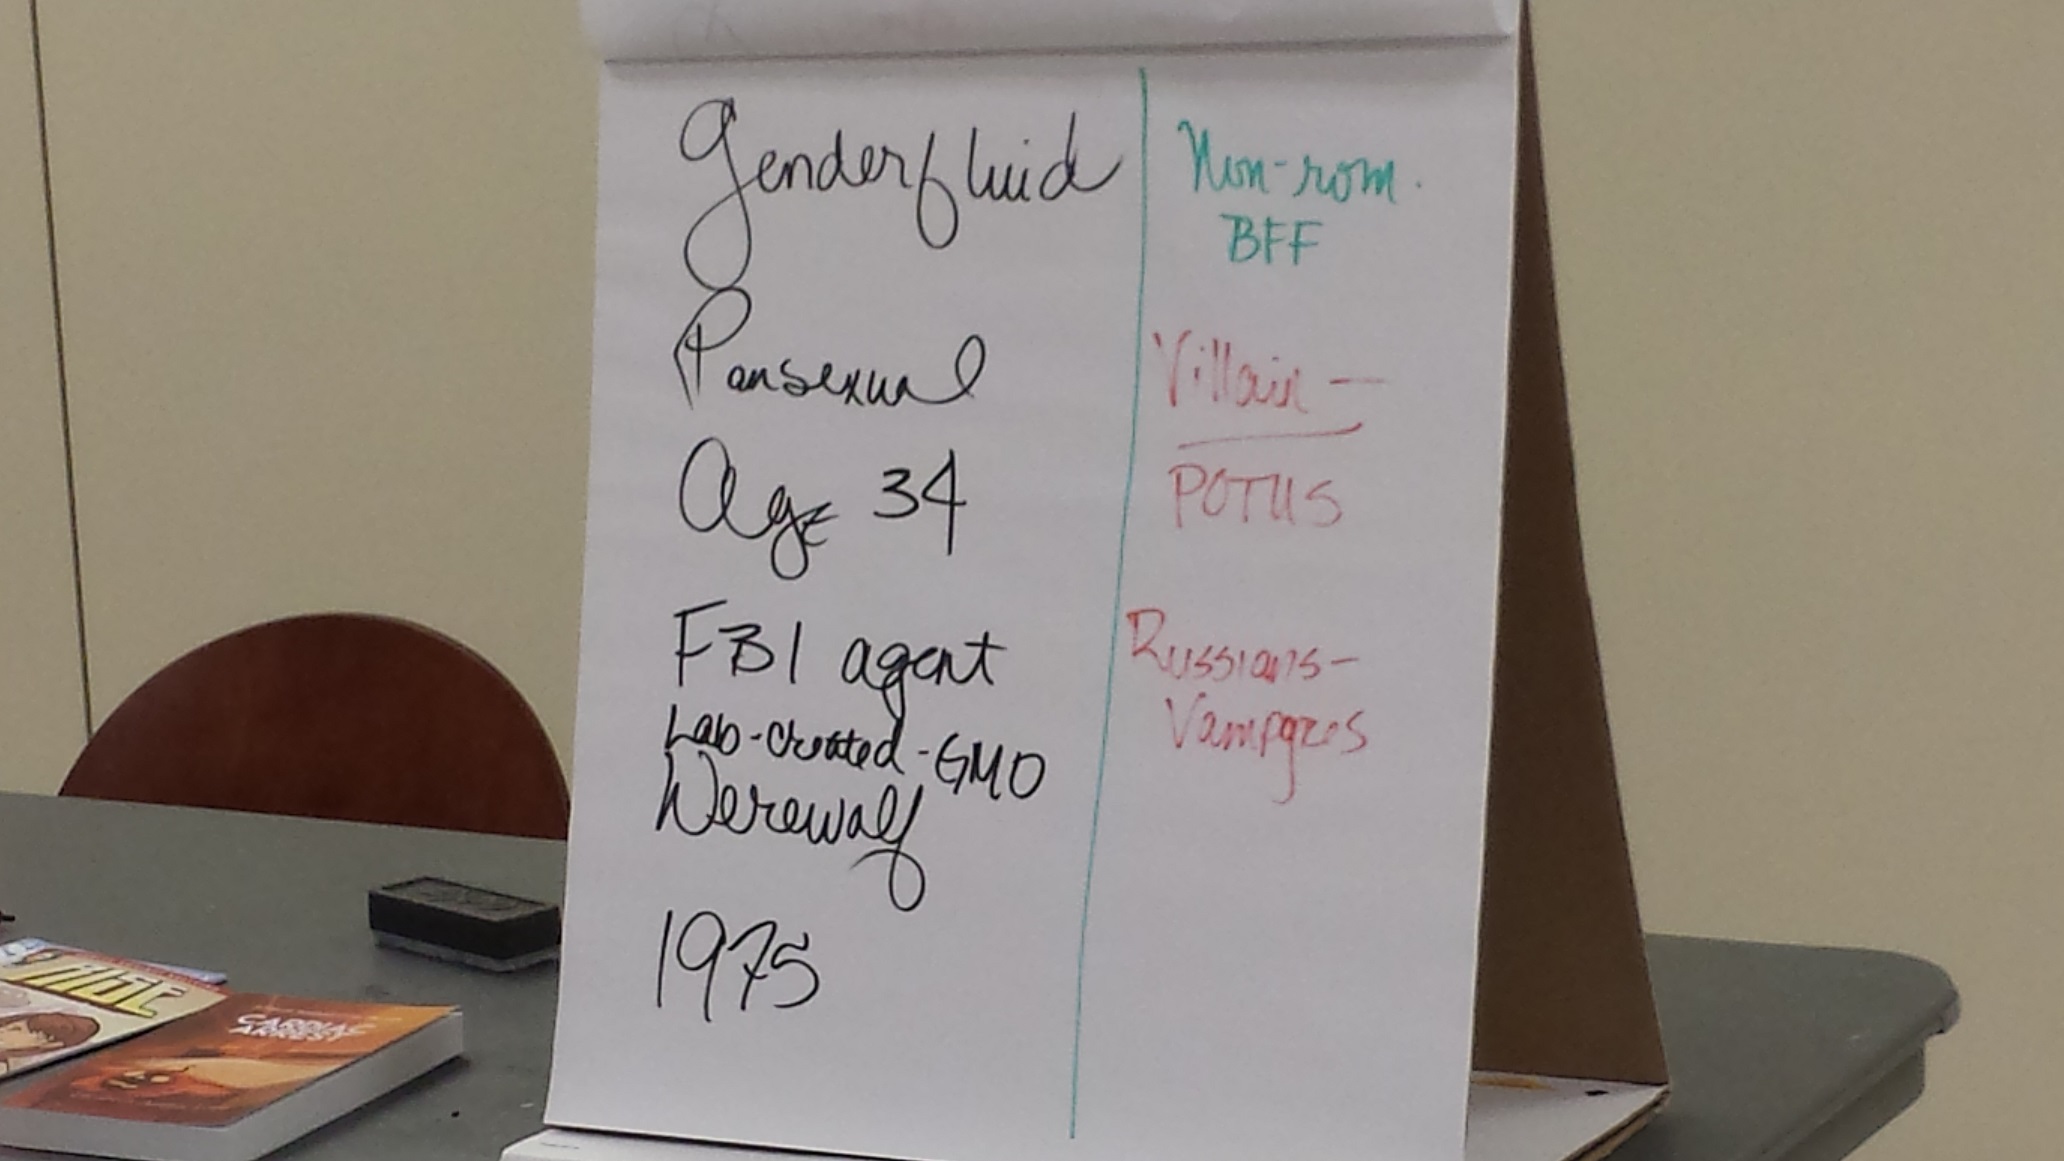 Genderfluid
Pansexual
Age 34
FBI agent
Lab-created-GMO
Werewolf
1975
Non-rom.
BFF
Villain —
POTUS
Russians-
Vampyres
CARDIAC
ARREST